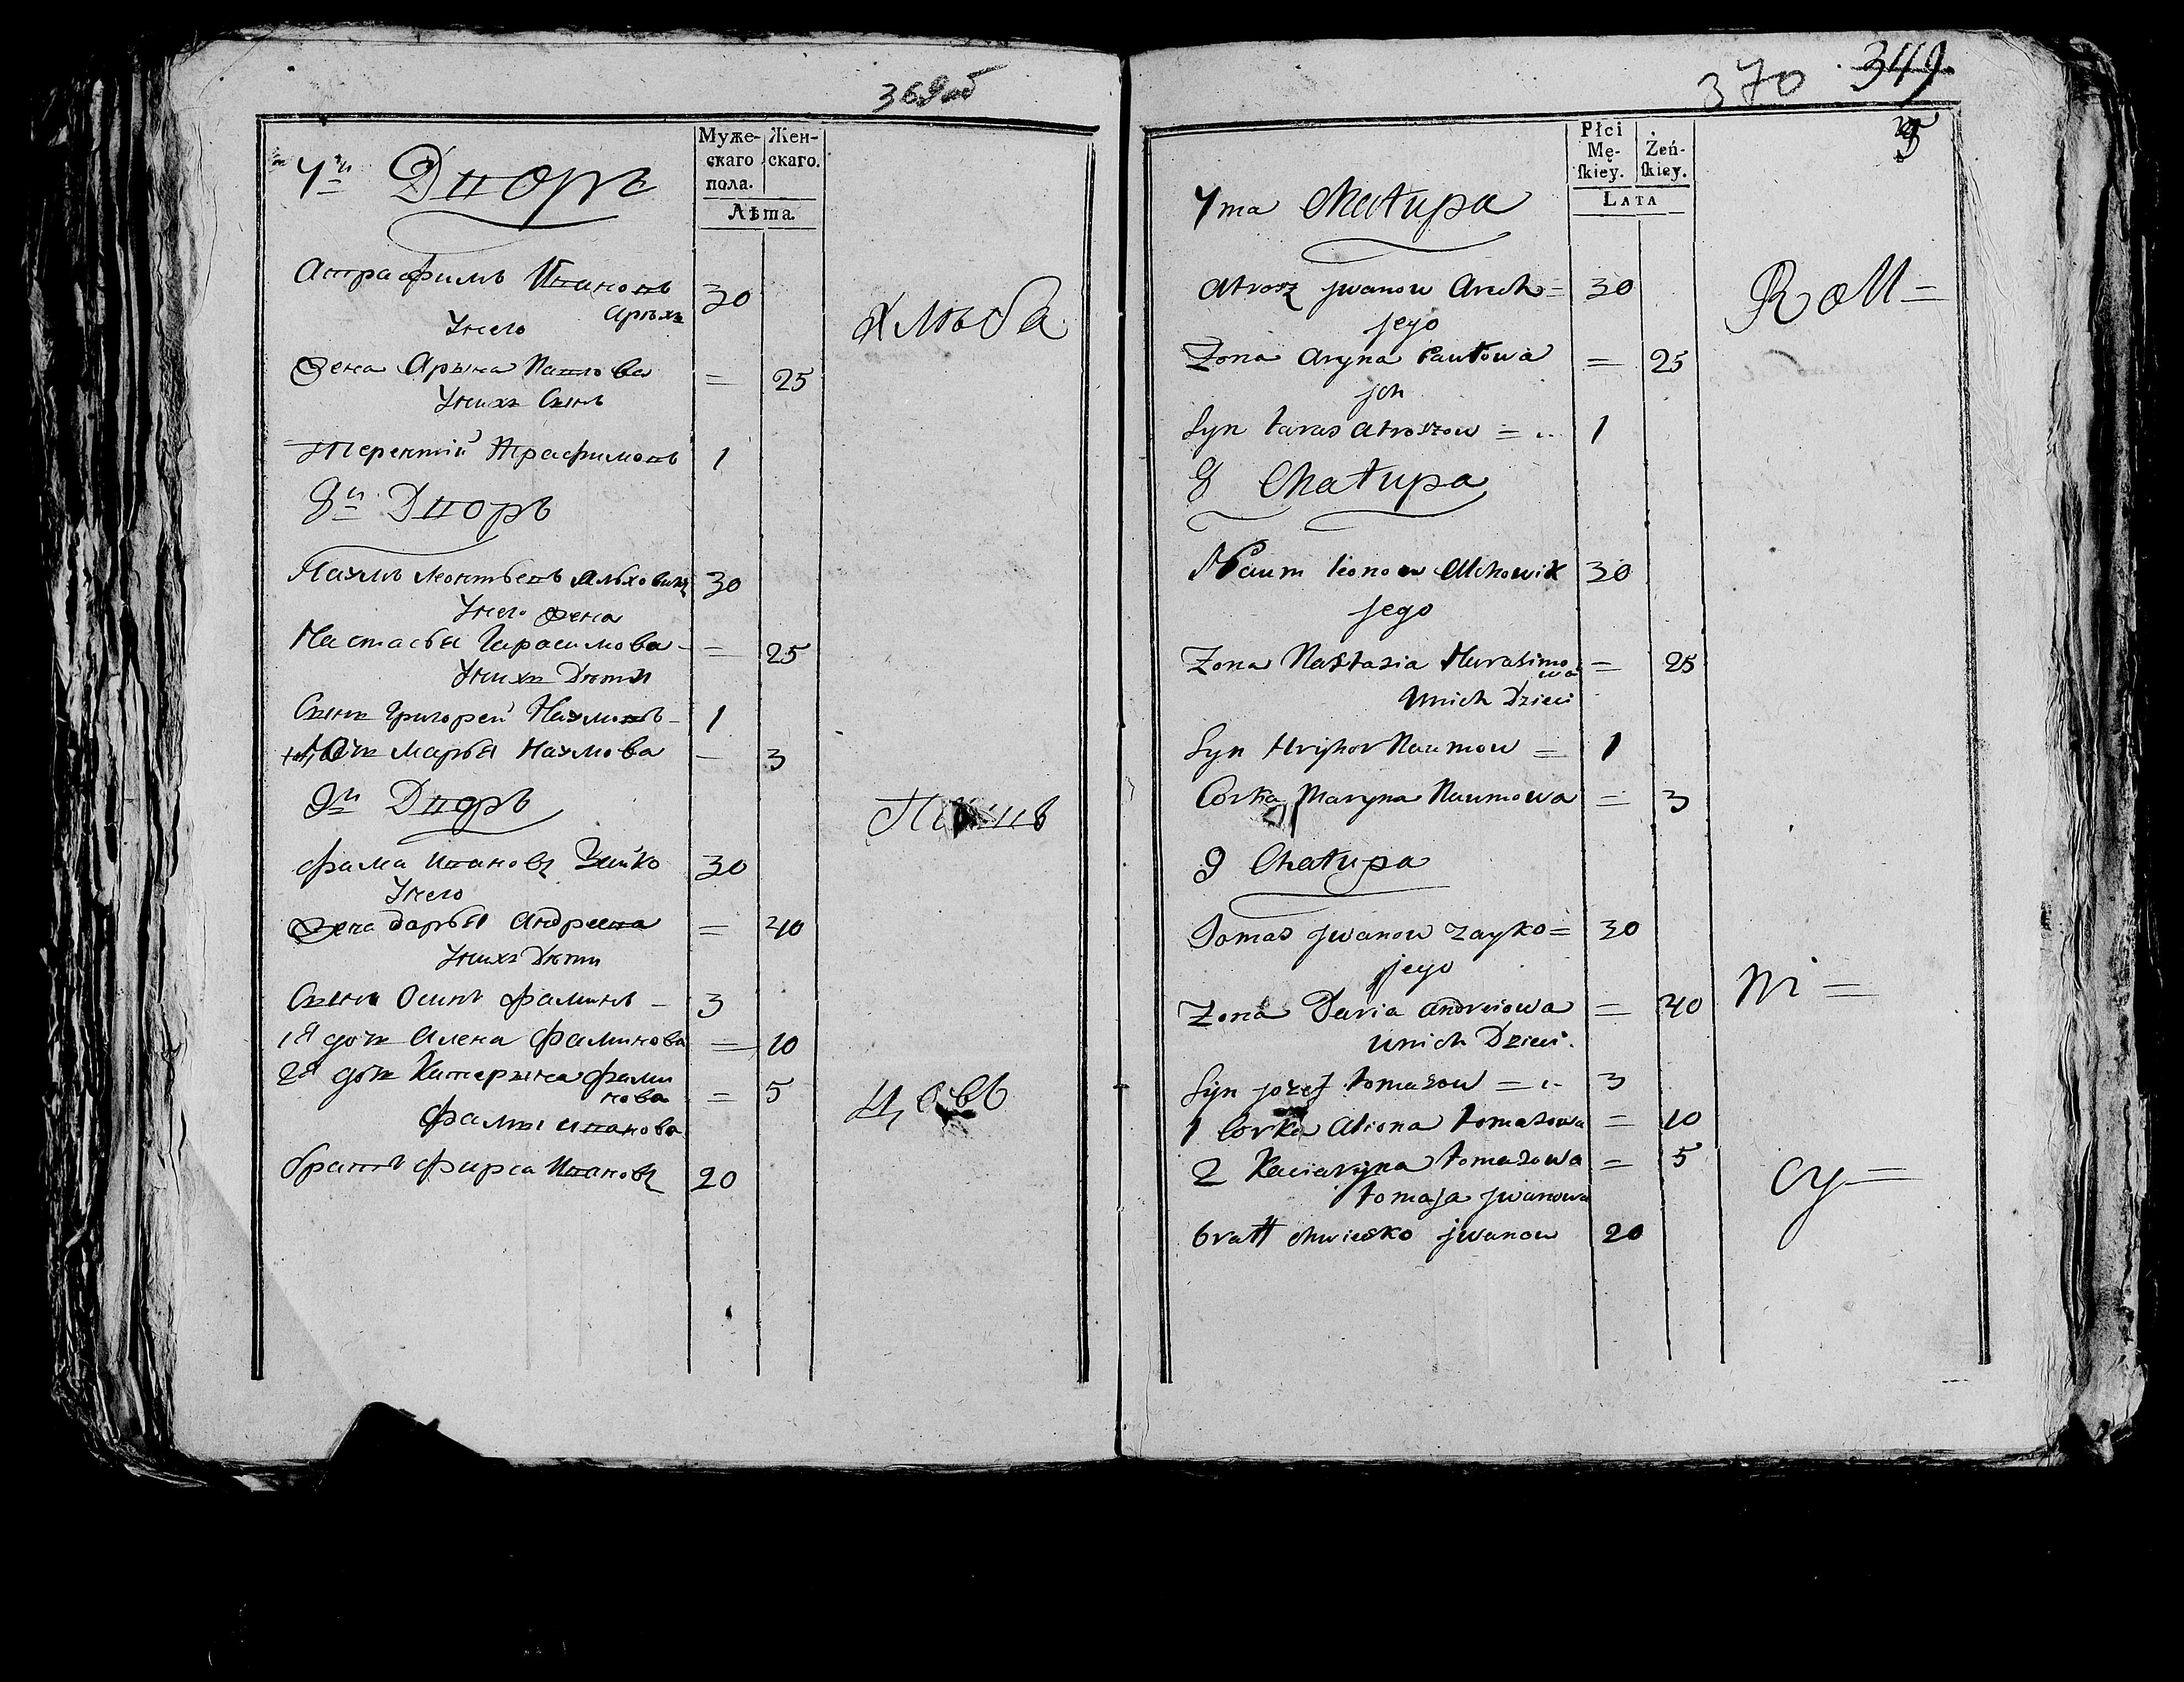 369об
Муже-
скаго
пола.
Жен-
скаго.
Лѣта.
7й Дворъ
Ивановъ
30
Унего
Жена Арына Павлова = 25
Унихъ Сынъ
Терентій Трафимовъ 1
8й Дворъ
Наумъ Леонтьевъ 30
Унего жена
Настасья Гарасимова = 25
Унихъ Дѣти
Сынъ Григорей Наумовъ 1
Марья Наумова 3
9й Дворъ
Фама Ивановъ Зайко 30
Унего
Жена Дарья Андреева = 40
Унихъ Дѣти
Сынъ Осипъ Фаминъ 3
1я дочь Алена Фаминова = 10
2я дочь Катерына Фами
нова = 5
Фамы Иванова
братъ Фирса Ивановъ 20
Хлѣба
цовъ
370 349
5
Płci
Mę-
ſkiey.
Żeń-
ſkiey.
Lata
7ma Chałupa
Atrosz Jwanow 30
jego
Zona Aryna Pawłowa = 25
jch
Syn Taras Atroszow = 1
8 Chałupa
Naum Leonow 30
jego
Zona Nastazia Harasimo
wa = 25
Unich Dzieci
Syn Hryhor Naumow = 1
Corka Maryna Naumowa = 3
9 Chałupa
Tomas Jwanow Zayko = 30
jego
Zona Daria Andreiowa = 40
Unich Dzieci.
Syn Jozef Tomasow = 3
1 Corka Aliona Tomasowa = 10
2 Kaciaryna Tomasowa = 5
Tomasa Jwanowa
bratt Jwanow 20
Roll=
ni=
cy=